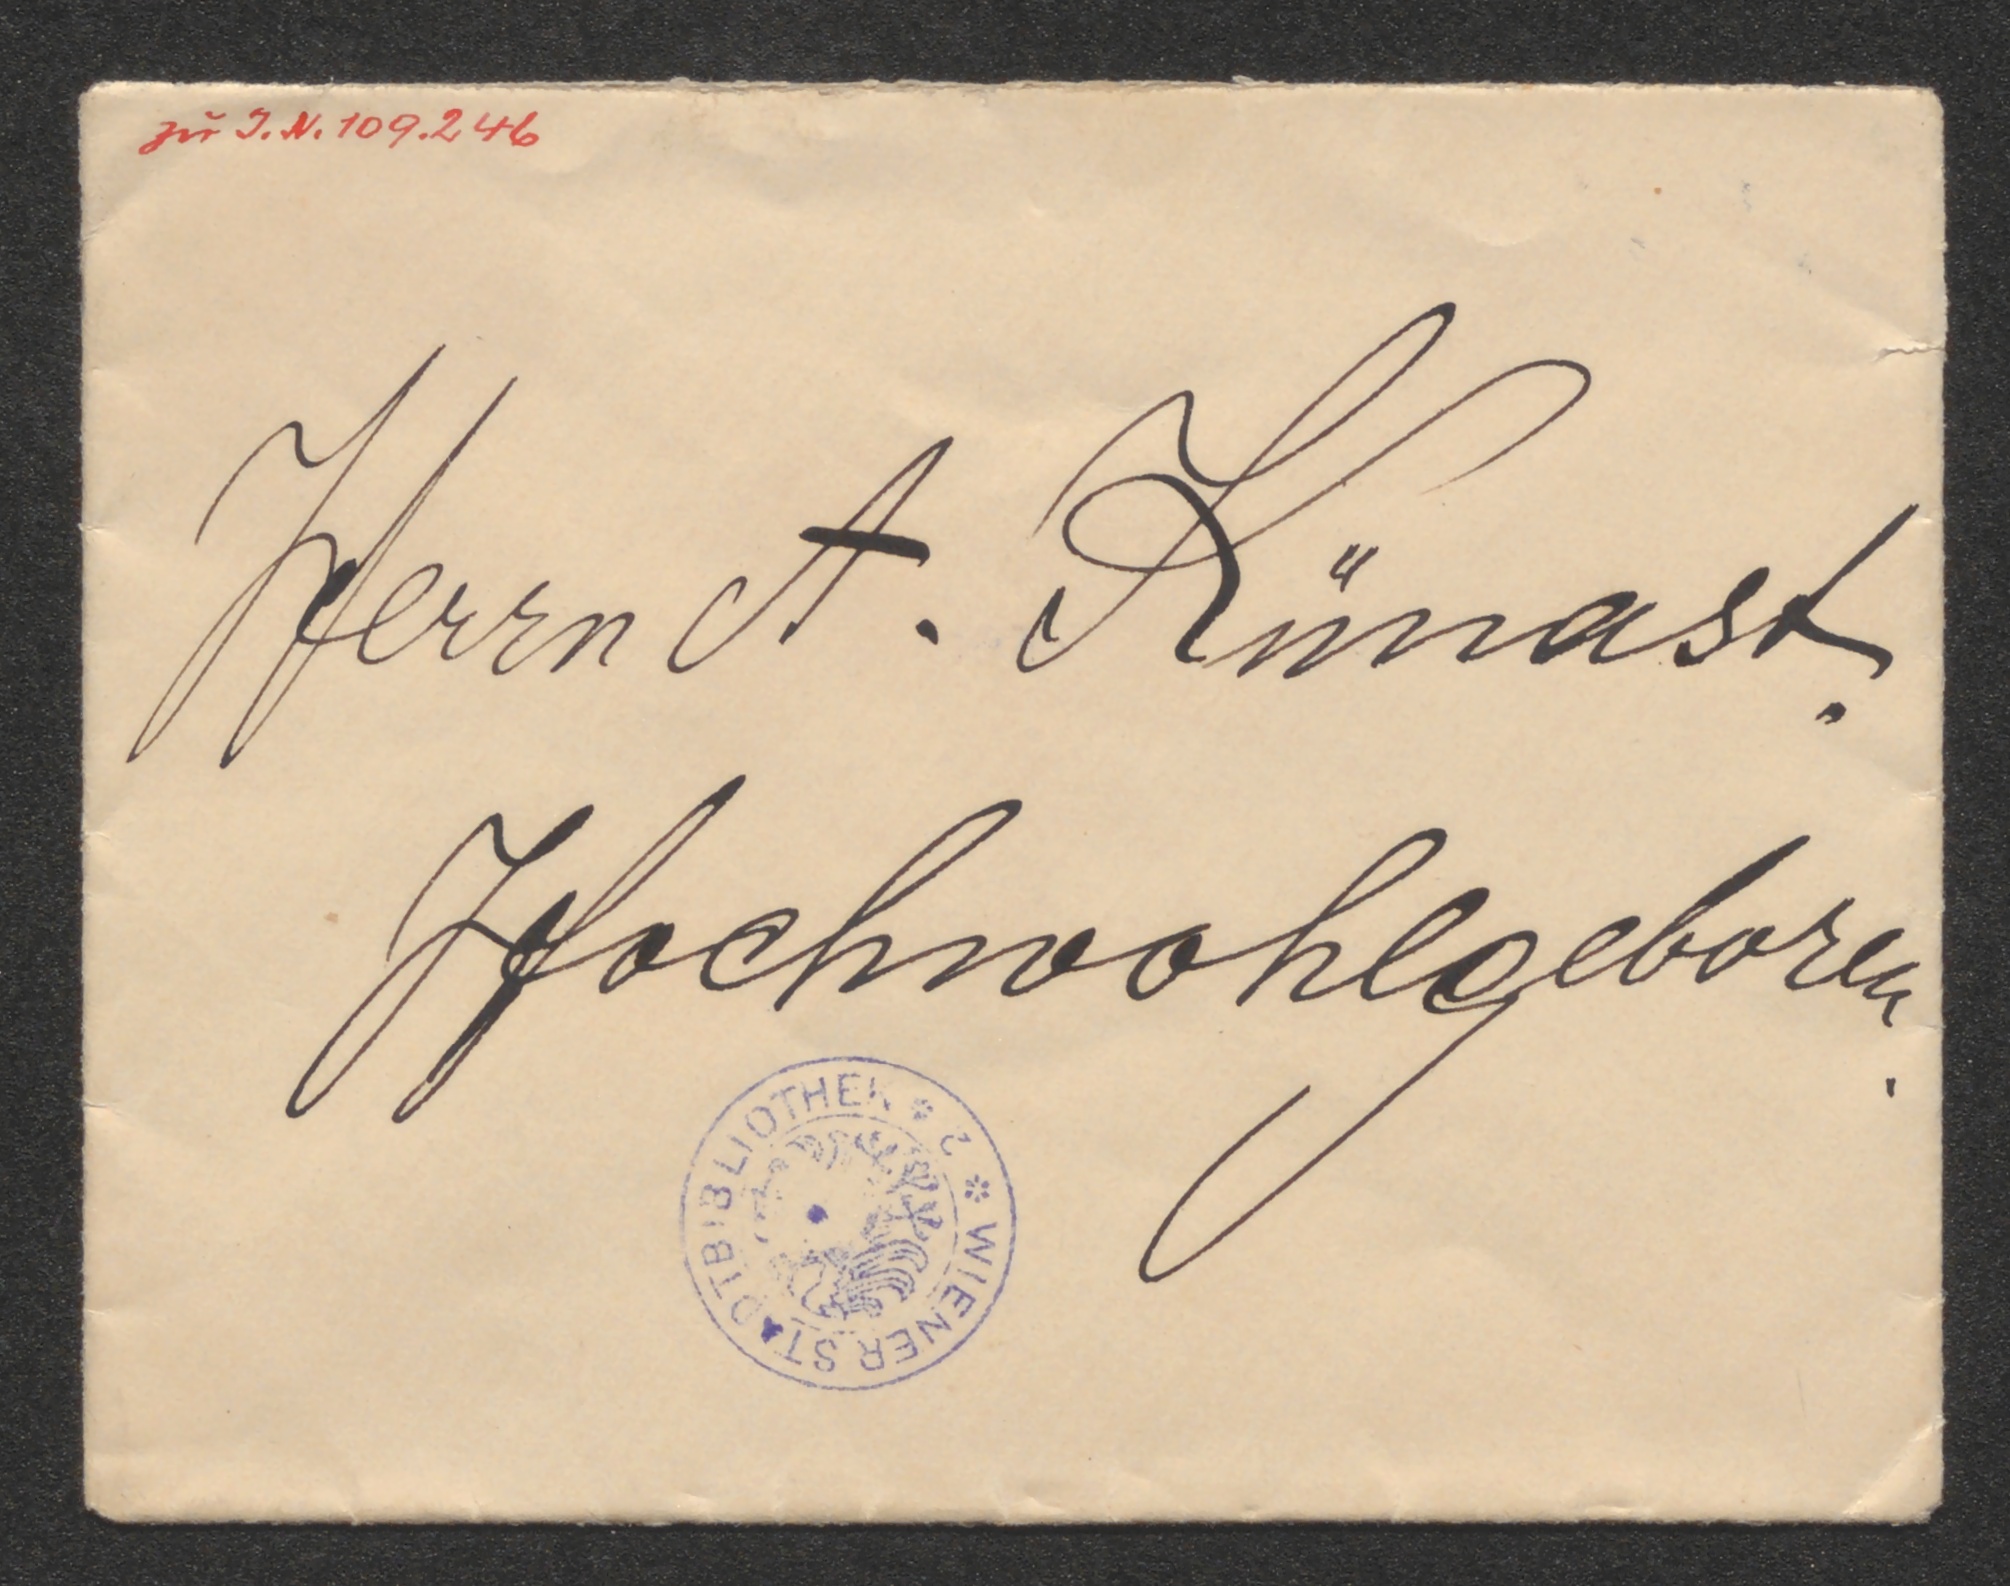 zur I.N. 109.246
Herrn A. Künast.
Hochwohlgeboren.
WIENER STADTBIBLIOTHEK * 2 *